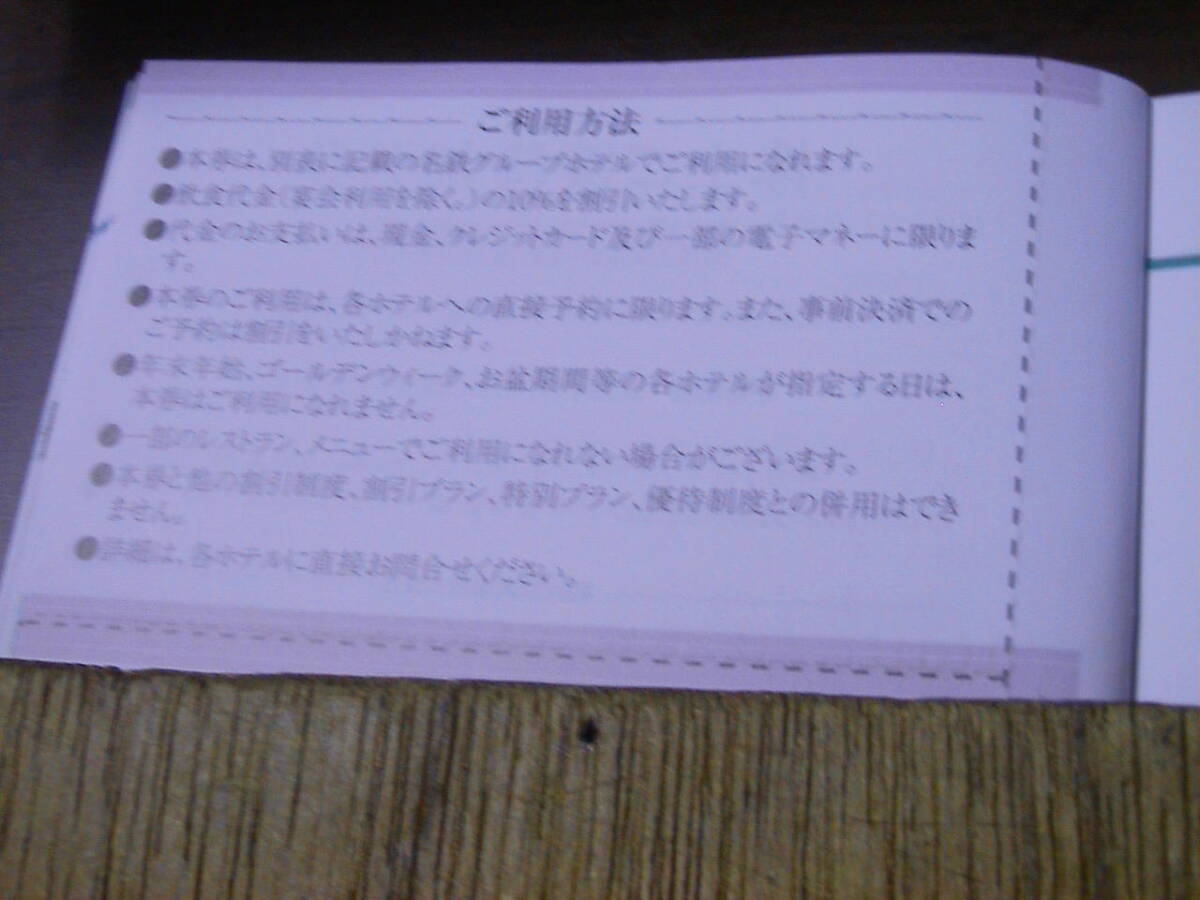 ご利用方法
●本券は、別表に記載の名鉄グループホテルでご利用になれます。
●飲食代金(宴会利用を除く。)の10%を割引いたします。
●代金のお支払いは、現金、クレジットカード及び一部の電子マネーに限りま
す。
●本券のご利用は、各ホテルへの直接予約に限ります。また、事前決済での
ご予約は割引をいたしかねます。
●年末年始、ゴールデンウィーク、お盆期間等の各ホテルが指定する日は、
本券はご利用になれません。
●一部のレストラン、メニューでご利用になれない場合がございます。
●本券と他の割引制度、割引プラン、特別プラン、優待制度との併用はでき
ません。
●詳細は、各ホテルに直接お問合せください。